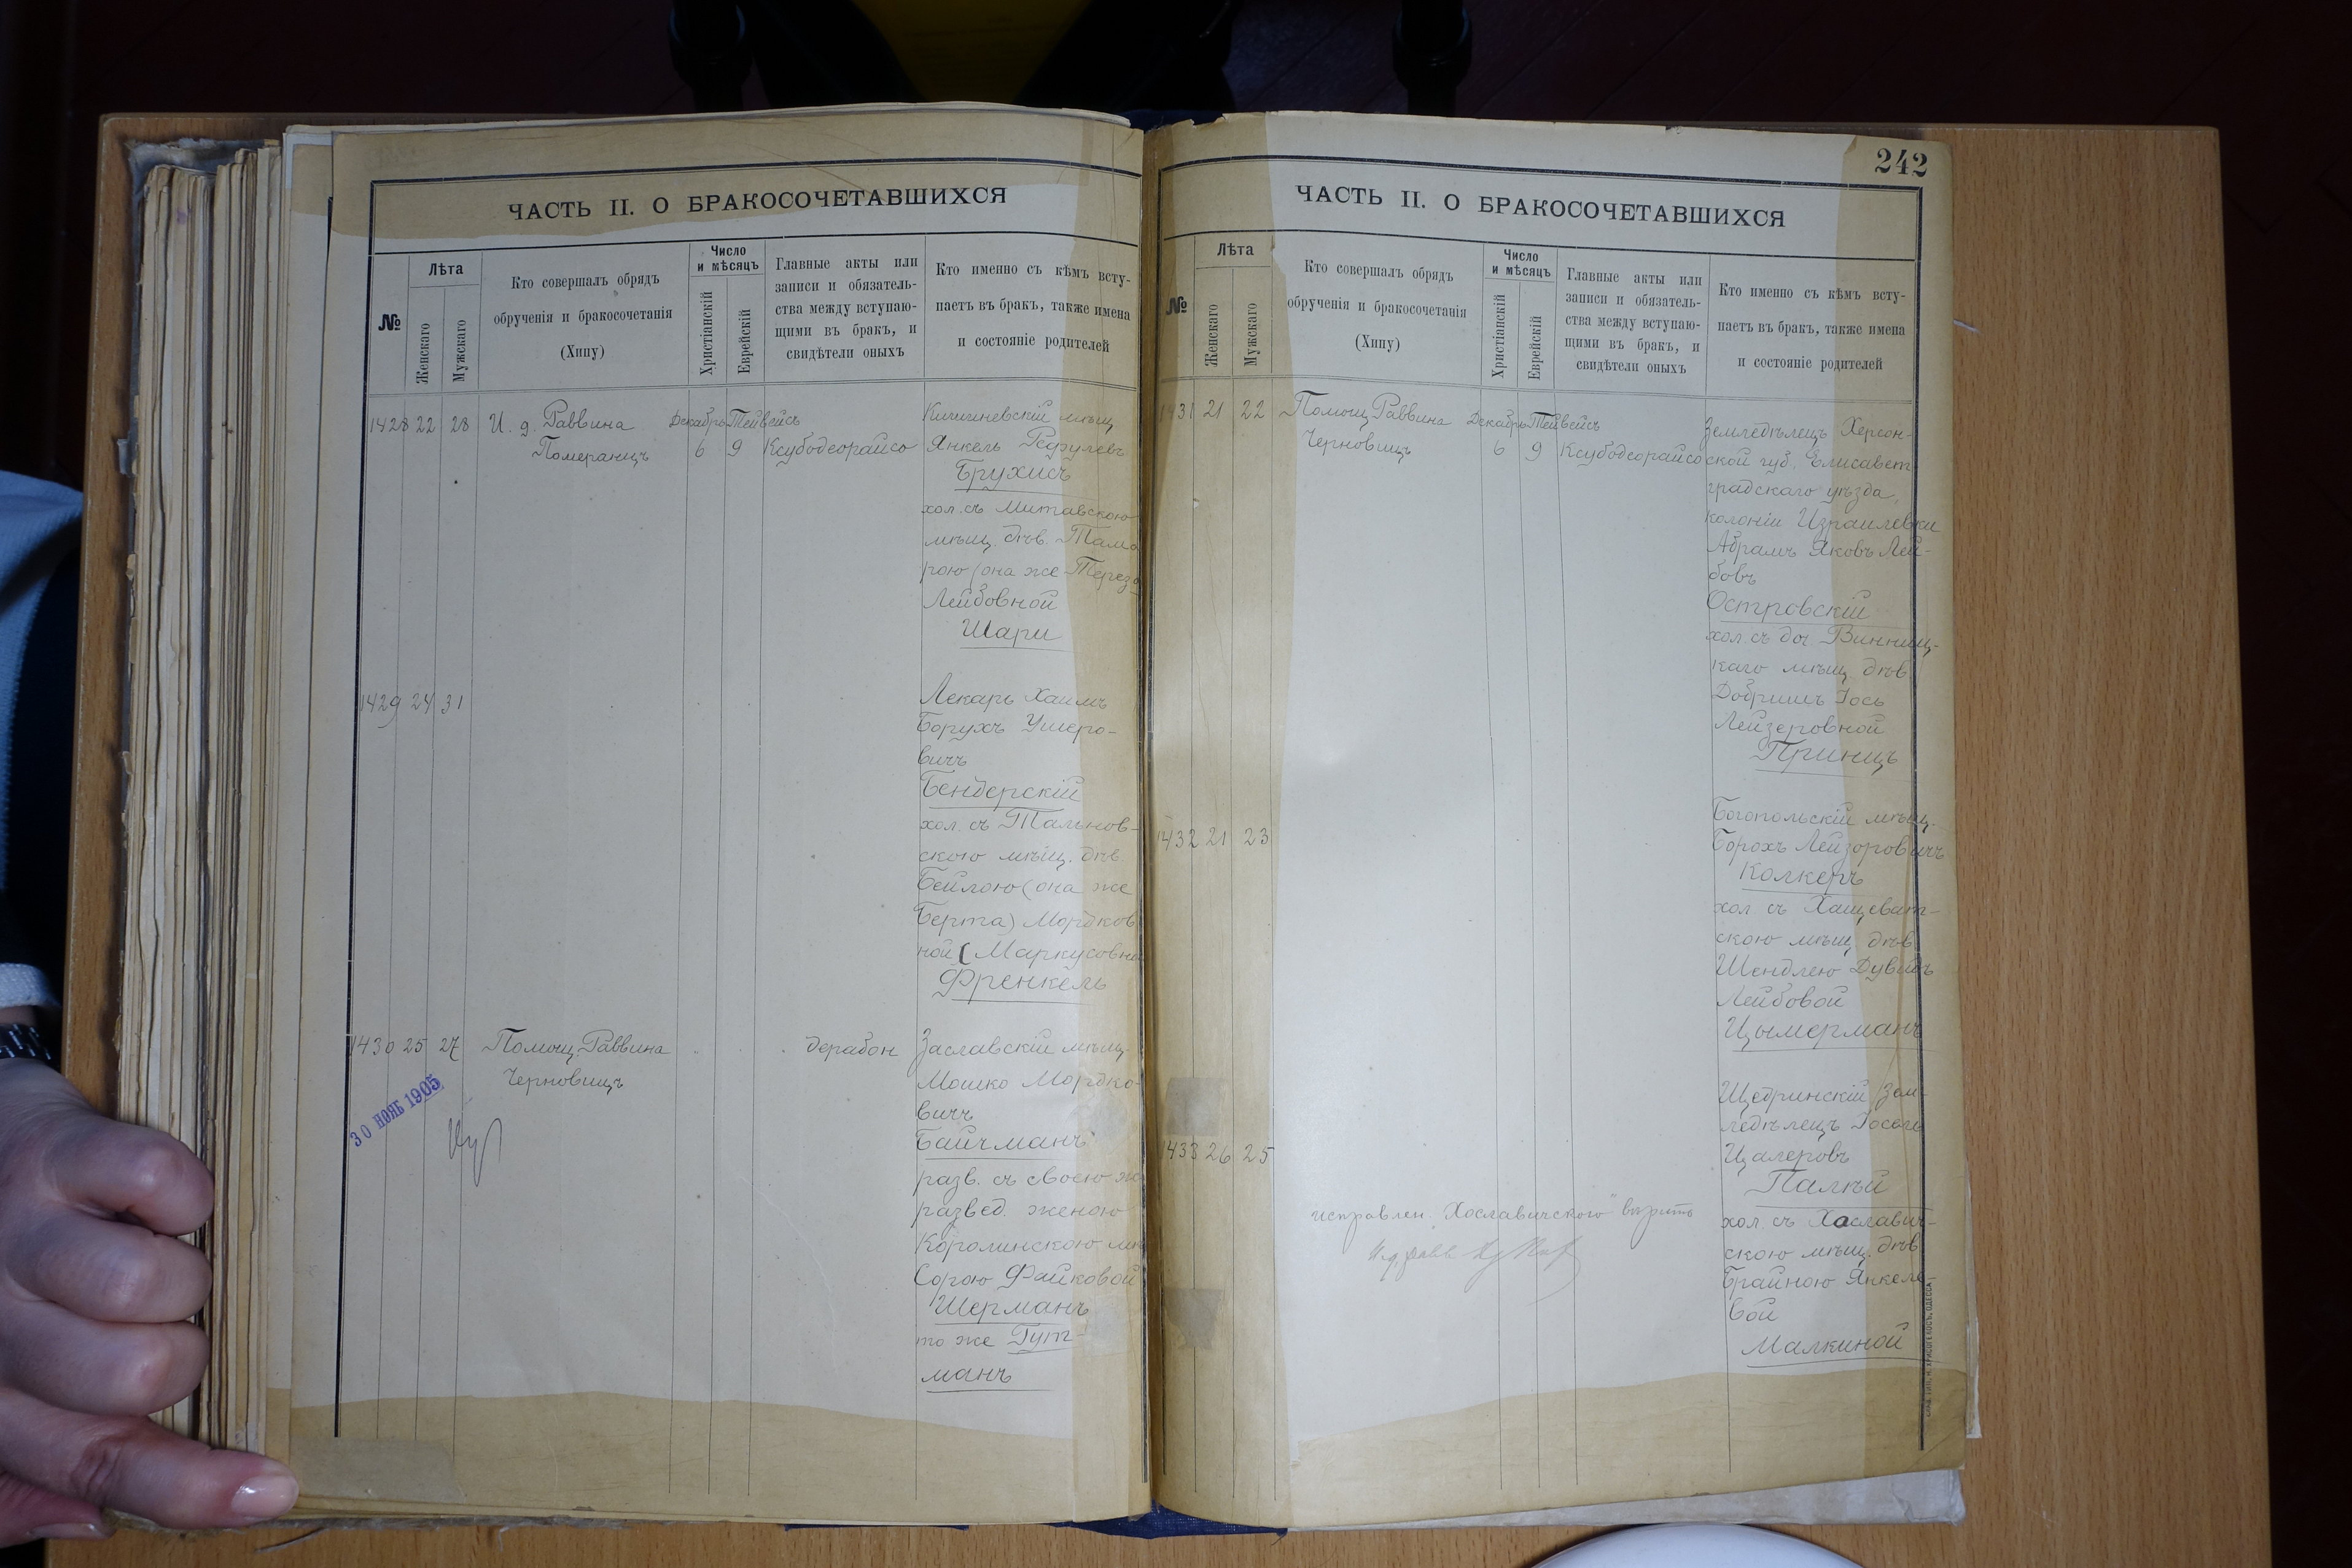 ЧАСТЬ II. О БРАКОСОЧЕТАВШИХСЯ
№
Лѣта
Женскаго
Мужскаго
Кто совершалъ обрядъ
обрученія и бракосочетанія
(Хипу)
Число
и мѣсяцъ
Христіанскій
Еврейскій
Главные акты или
записи и обязатель-
ства между вступаю-
щими въ бракъ, и
свидѣтели оныхъ
Кто именно съ кѣмъ всту-
паетъ въ бракъ, также имена
и состояніе родителей
1428 22 28 И. д. Раввина Декабрь Тейвейсъ
Померанцъ 6 9 Ксубодеорайсо
Кишиневскій мѣщ
Янкель Рефулевъ
Брухисъ
хол. съ Митавскою
мѣщ. дѣв. Тама
рою (она же Тереза
Лейбовной
Шари
1429 24 31
Лекарь Хаимъ
Борухъ Ушеро-
вичъ
Бендерскій
хол. съ Тальнов-
скою мѣщ. дѣв.
Бейлою (она же
Берта) Мордков
ной (Маркусовн
Френкель
1430 25 27 Помощ. Раввина
Черновицъ
дерабон
30 НОЯБ 1905
Заславскій мѣщ.
Мошко Мордко-
вичъ
Байчманъ
разв. съ своею же
развед. женою
Королинскою мѣ
Сорою Файковой
Шерманъ
то же Гут-
манъ
242
ЧАСТЬ II. О БРАКОСОЧЕТАВШИХСЯ
№
Лѣта
Женскаго
Мужскаго
Кто совершалъ обрядъ
обрученія и бракосочетанія
(Хипу)
Число
и мѣсяцъ
Христіанскій
Еврейскій
Главные акты или
записи и обязатель-
ства между вступаю-
щими въ бракъ, и
свидѣтели оныхъ
Кто именно съ кѣмъ всту-
паетъ въ бракъ, также имена
и состояніе родителей
1431 21 22 Помощ Раввина Декабрь Тейвейсъ
Черновицъ 6 9 Ксубодеорайсо
Земледѣлецъ Херсон-
ской губ. Елисавет-
градскаго уѣзда,
колоніи Израилевки
Абрамъ Яковъ Лей-
бовъ
Островскій
хол. съ доч Винниц-
каго мѣщ. дѣв
Добришъ Іось
Лейзеровной
Принцъ
1432 21 23
Богопольскій мѣщ.
Борохъ Лейзоровичъ
Колкеръ
хол. съ Хащеват-
скою мѣщ дѣв.
Шендлею Дувидъ
Лейбовой
Цымерманъ
1433 26 25
Щедринскій зем-
ледѣлецъ Іосель
Цалеровъ
Палѣй
хол. съ Хославич-
скою мѣщ. дѣв.
Брайною Янкеле-
вой
Малкиной
исправлен. „Хославичского" вѣрить
И.д. равв